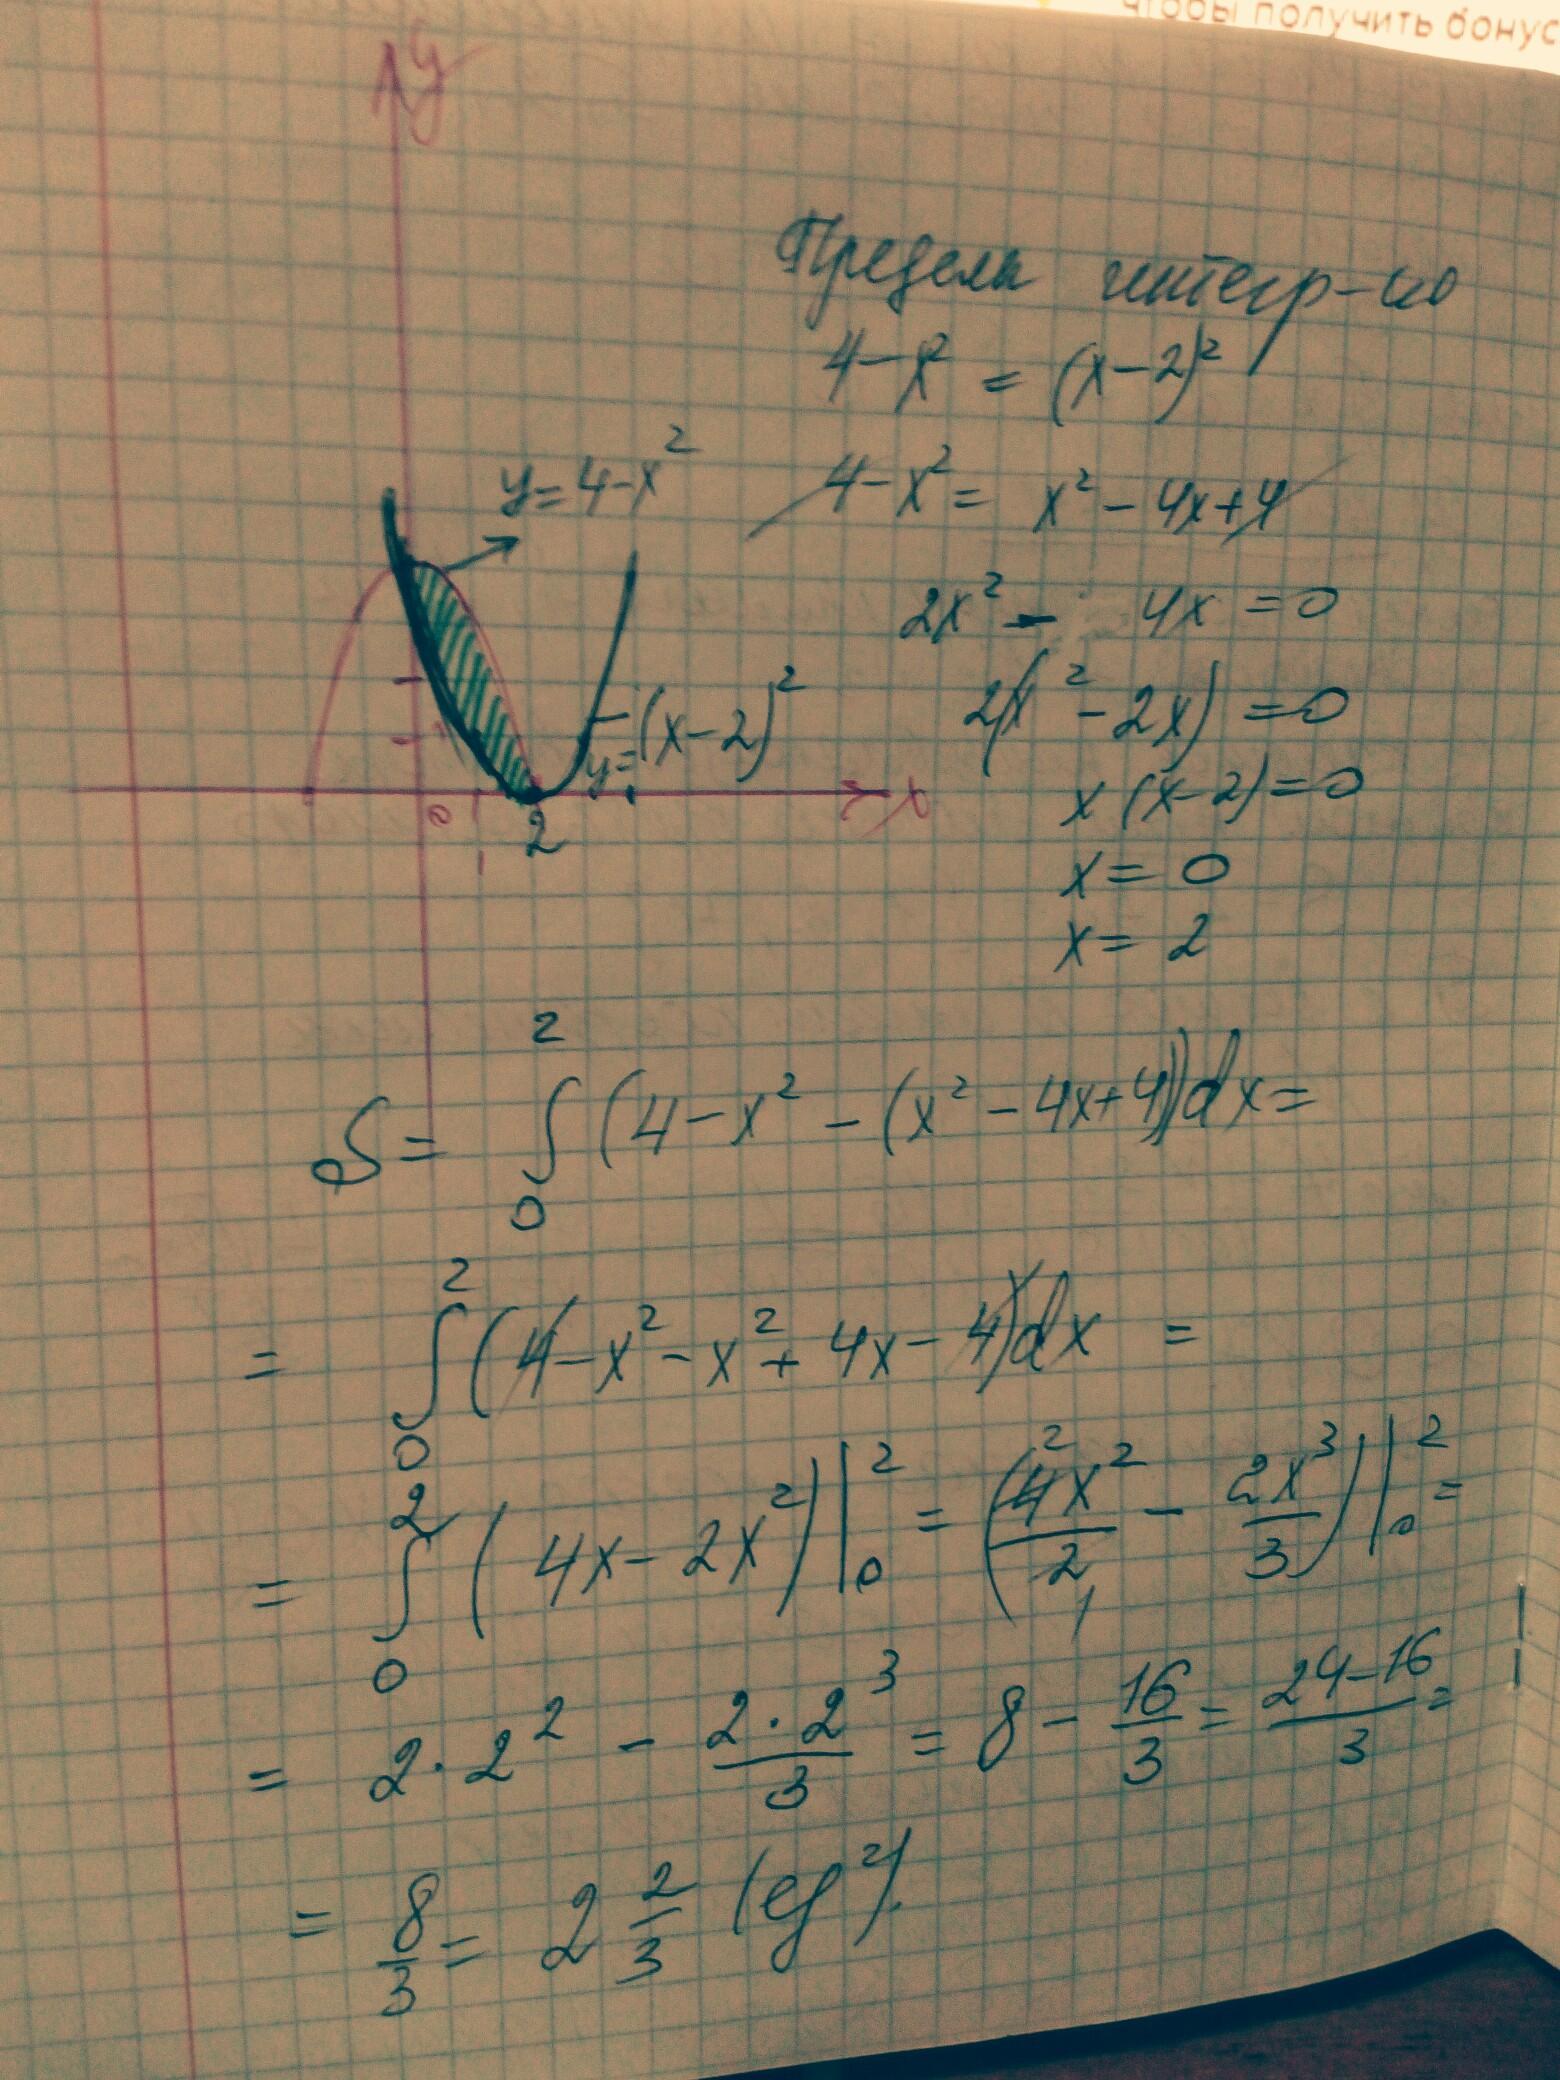 чтобы получить бонус
y
Пределы интегр-ю
4-x² = (x-2)²
y=4-x²
4-x² = x²-4x+4
2x² - 4x =0
2(x²-2x) =0
y=(x-2)²
x(x-2)=0
0 1 2 x
x= 0
x= 2
S= ∫₀² (4-x² -(x²-4x+4))dx=
= ∫₀² (4-x²-x²+4x-4)dx =
= ∫₀² (4x-2x²)|₀² = (4x²/2 - 2x³/3)|₀² =
= 2·2² - 2·2³/3 = 8 - 16/3 = 24-16/3 =
= 8/3 = 2 2/3 (ед²).